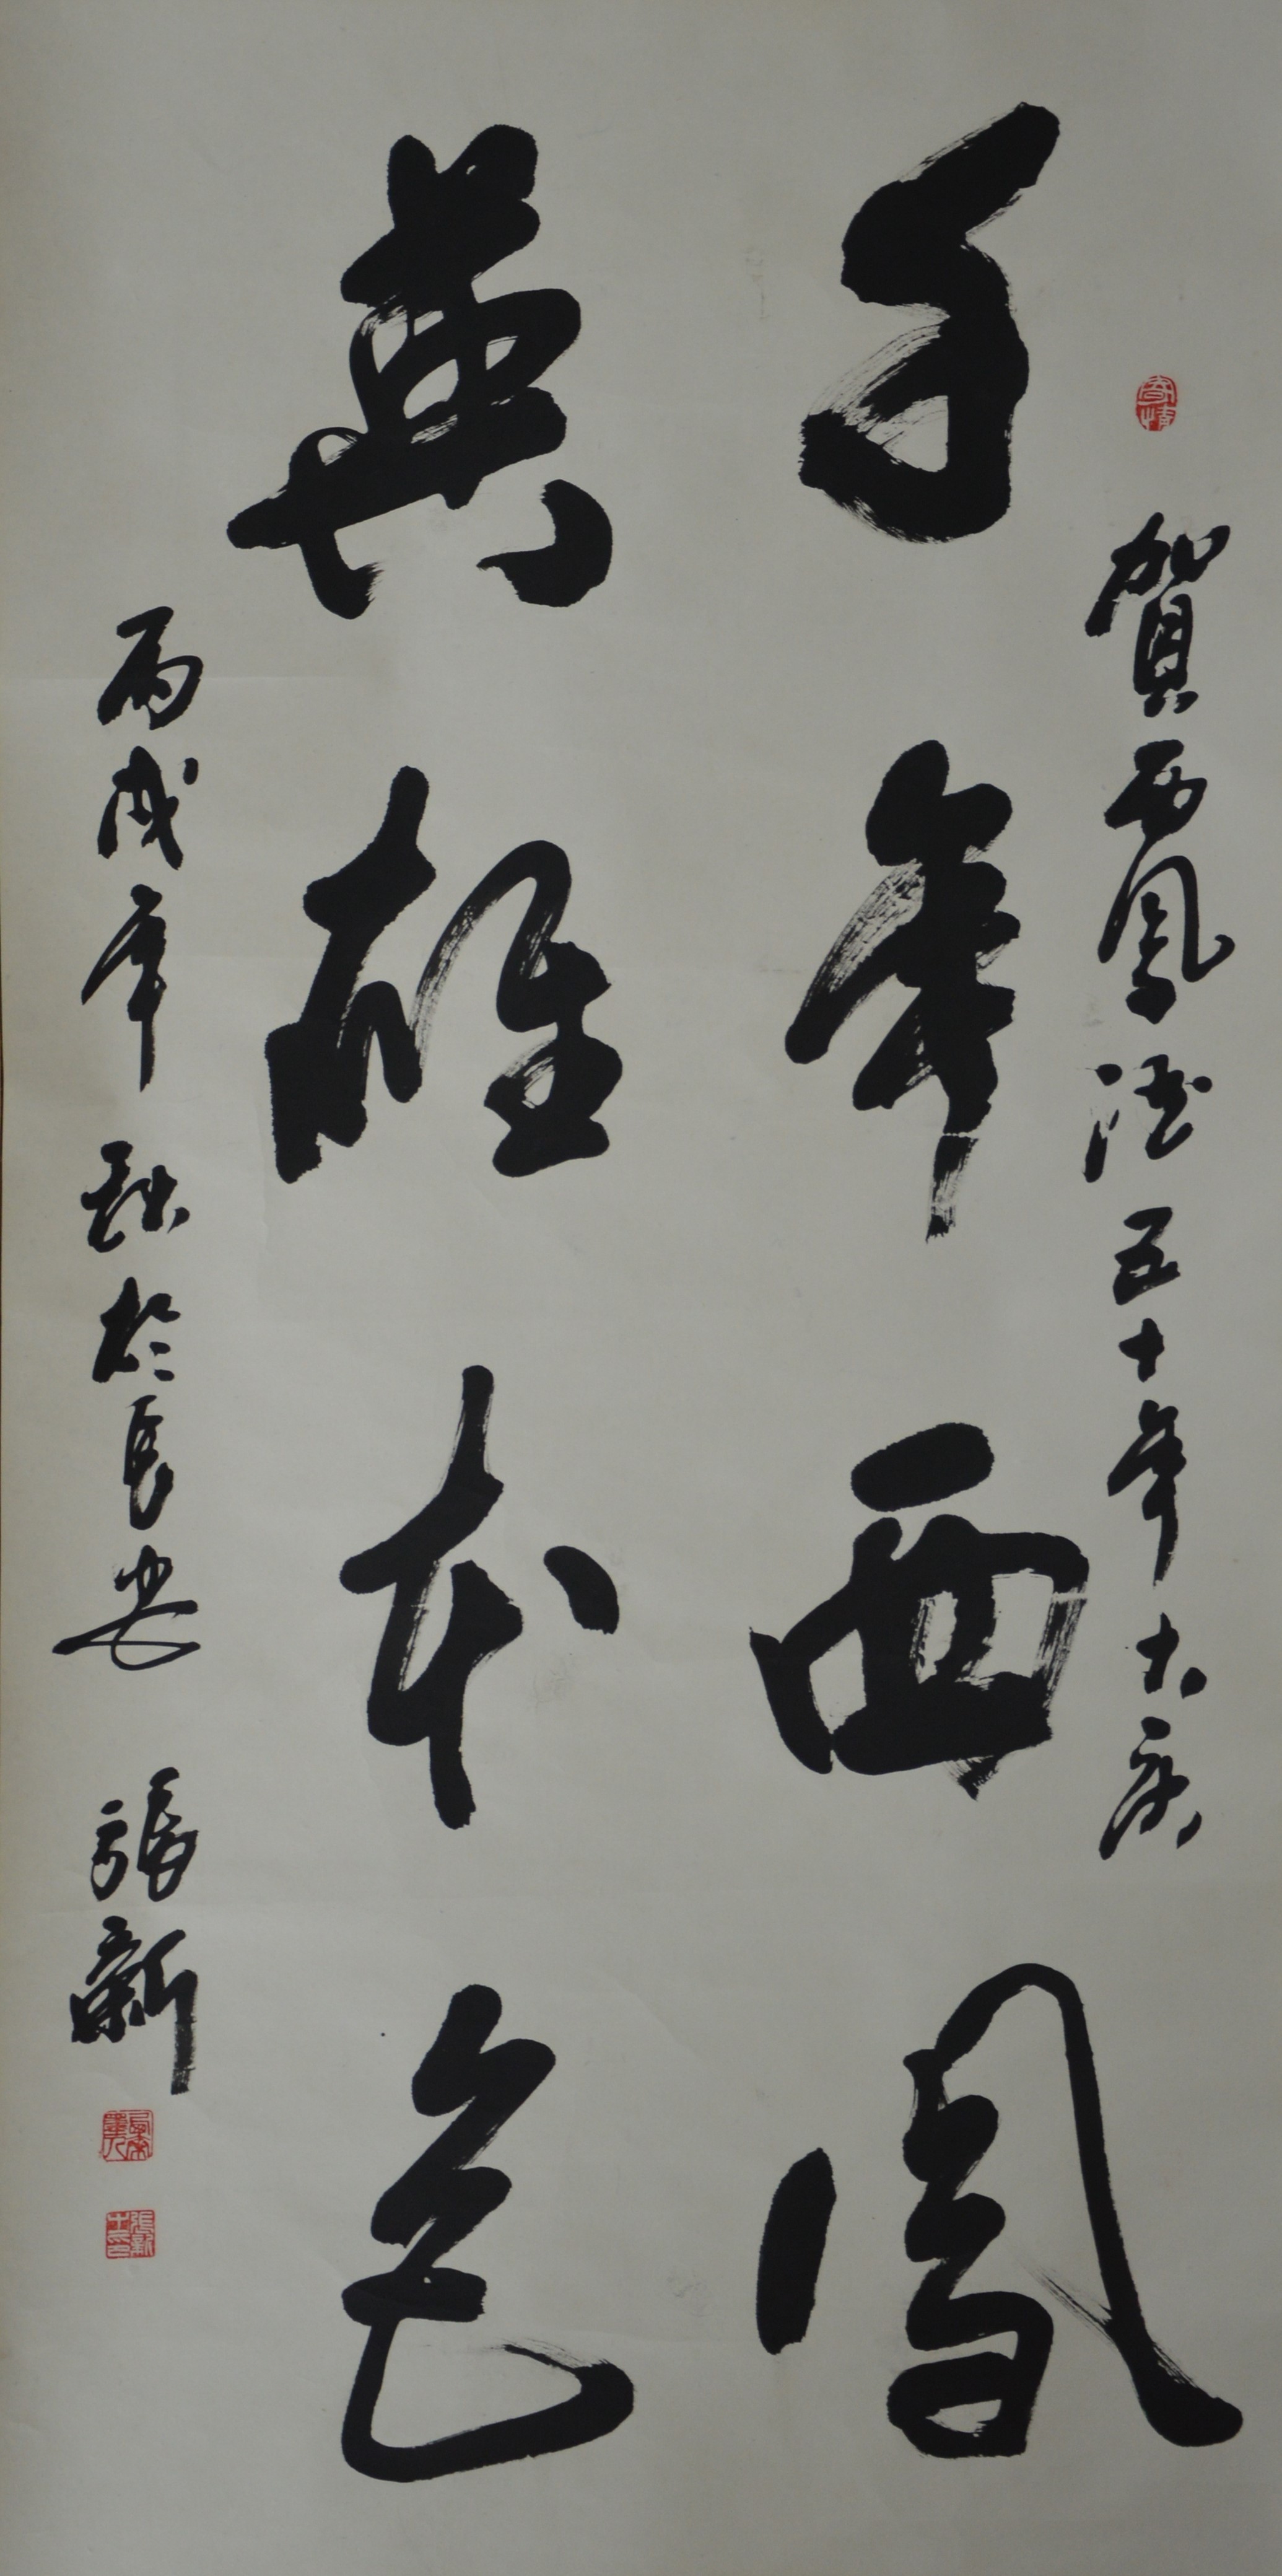 賀西鳳酒五十年大慶
千年西鳳
英雄本色
丙戌年秋於長安
張新